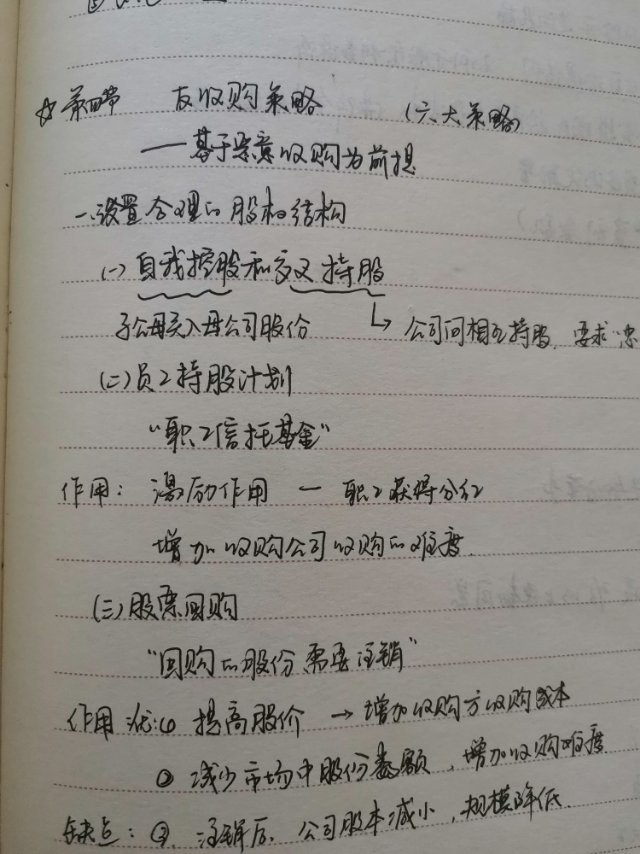 ☆ 第四节 反收购策略 (六大策略)
——基于恶意收购为前提
一、设置合理的股权结构
(一) 自我控股和交叉持股
子公司买入母公司股份 ↳ 公司间相互持股,要求忠
(二) 员工持股计划
“职工信托基金”
作用: 激励作用 — 职工获得分红
增加收购公司收购的难度.
(三) 股票回购
“回购的股份需要注销”
作用 优:① 提高股价 → 增加收购方收购成本
② 减少市场中股份数额,增加收购难度
缺点: ①. 注销后, 公司股本减小,规模降低.